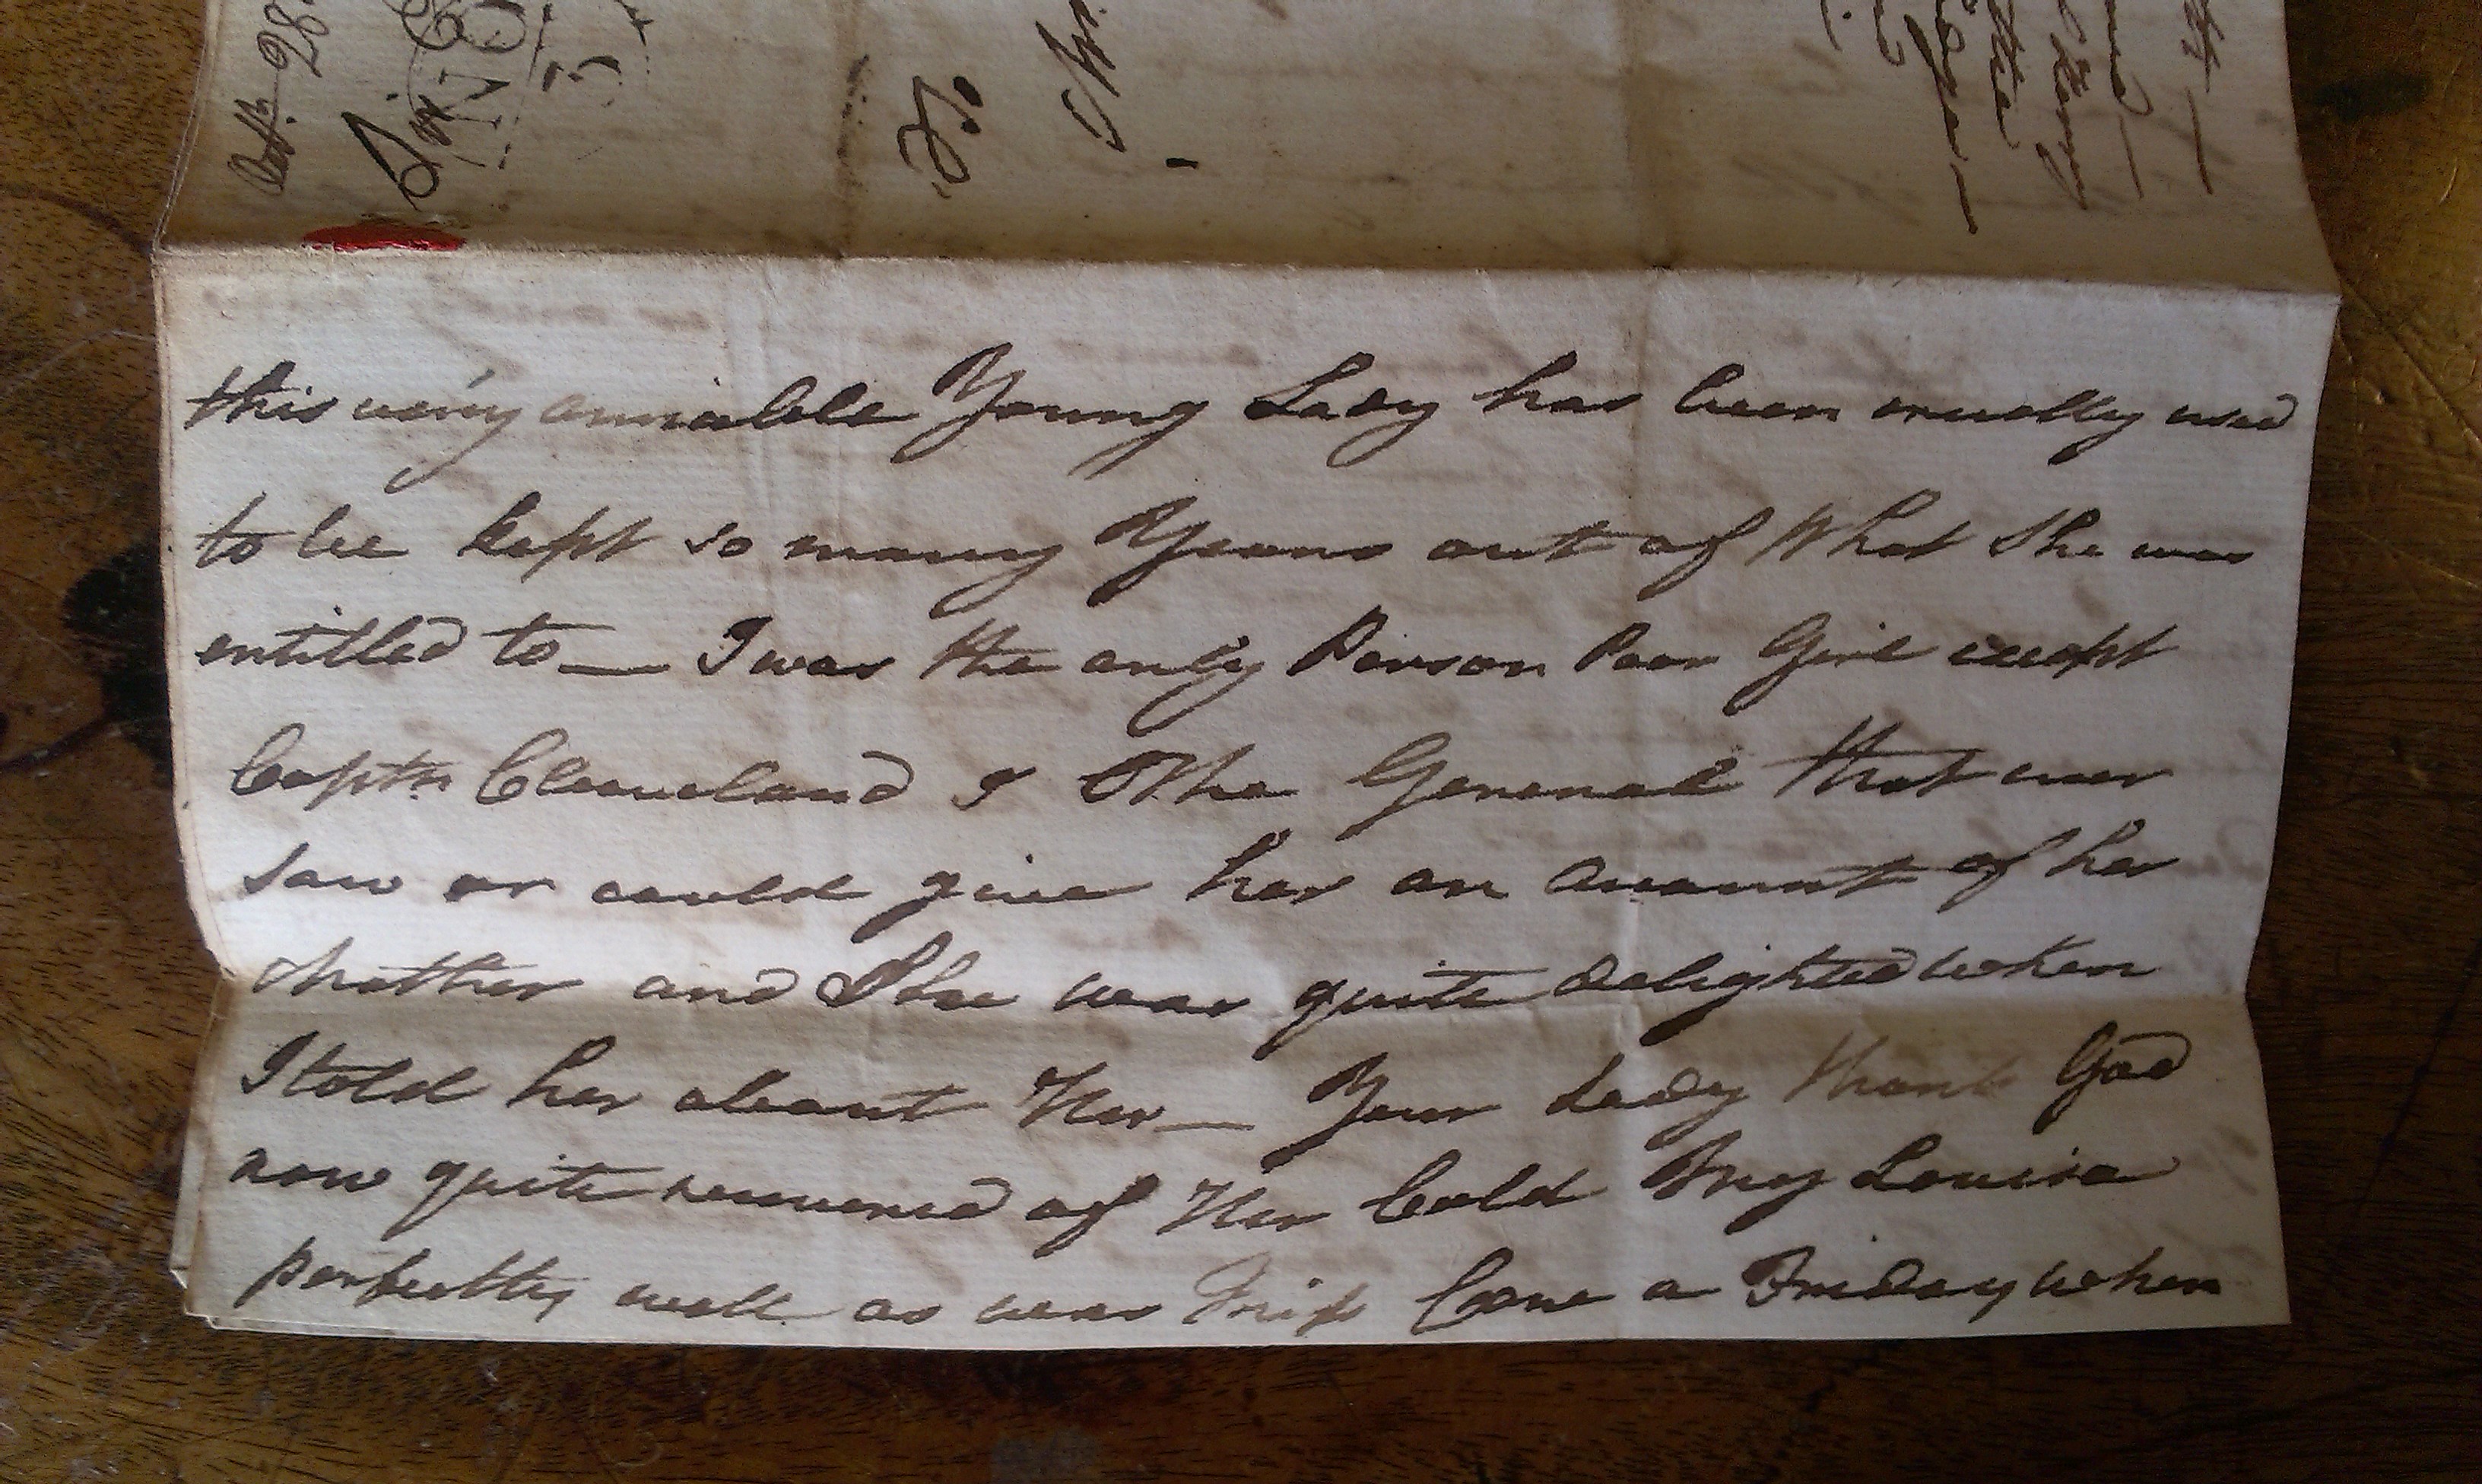 28
this very amiable Young Lady has been cruelly used
to be kept so many Years out of What She was
entitled to — I was the only Person Poor Girl except
Captn Cleaveland & The General that ever
saw or could give her an account of her
Mother and She was quite delighted when
I told her about Her — Your Lady thank God
now quite recovered of Her Cold My Louisa
perfectly well as was Miss Cane a Friday when